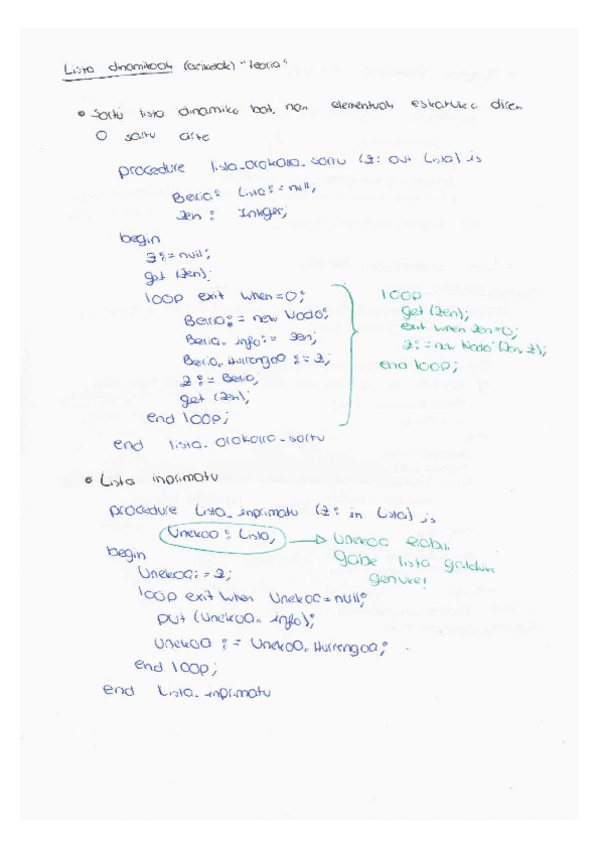 Lista dinamikoak (ariketak) "teoria"
• Sortu lista dinamiko bat, non elementuak eskatuko diren
0 sartu arte
procedure lista_orokorra_sortu (Z: out Lista) is
Berria: Lista:= null;
Zen: Integer;
begin
Z:= null;
get (Zen);
loop exit when=0;
Berria:= new Nodo;
Berria.info:= Zen;
Berria.Hurrengoa:= Z;
Z:= Berria;
get (Zen);
end loop;
end lista_orokorra_sortu
loop
get (Zen);
exit when Zen=0;
Z:= new Nodo'(Zen, Z);
end loop;
• Lista inprimatu
procedure Lista_inprimatu (Z: in Lista) is
Unekoa: Lista;
Unekoa erabili
gabe lista galduko
genuke!
begin
Unekoa:= Z;
loop exit when Unekoa=null;
put (Unekoa.info);
Unekoa:= Unekoa.Hurrengoa;
end loop;
end Lista_inprimatu